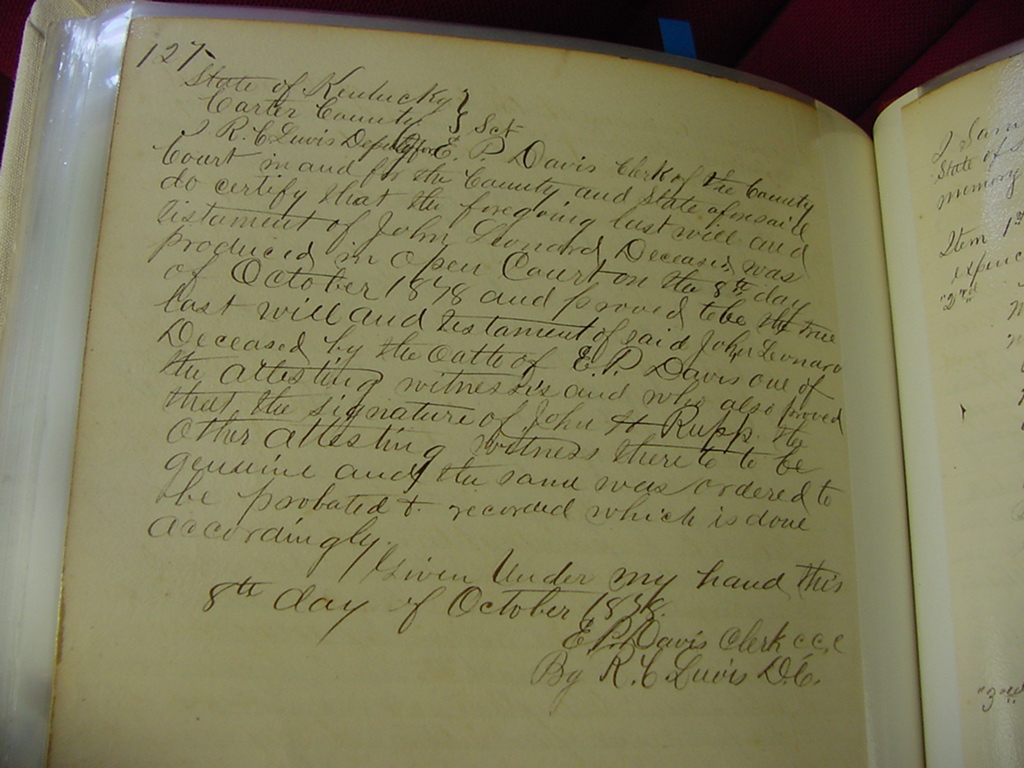 127.
State of Kentucky }
Carter County } Sct
I R. C. Lewis Dep for E. B Davis Clerk of the County
Court in and for the County and State aforesaid
do certify that the foregoing last will and
testament of John Deceased was
produced in open Court on the 8th day
of October 1878 and proved to be the true
last will and testament of said John
Deceased by the oath of E. B Davis one of
the attesting witnesses and who also proved
that the signature of John H Rupp the
other attesting witness there to to be
genuine and the same was ordered to
be probated & record which is done
accordingly
Given under my hand this
8th day of October 1878
E B Davis Clerk C.C.C
By R. C Lewis D.C.
State of
memory
Item 1st
2nd
"3rd